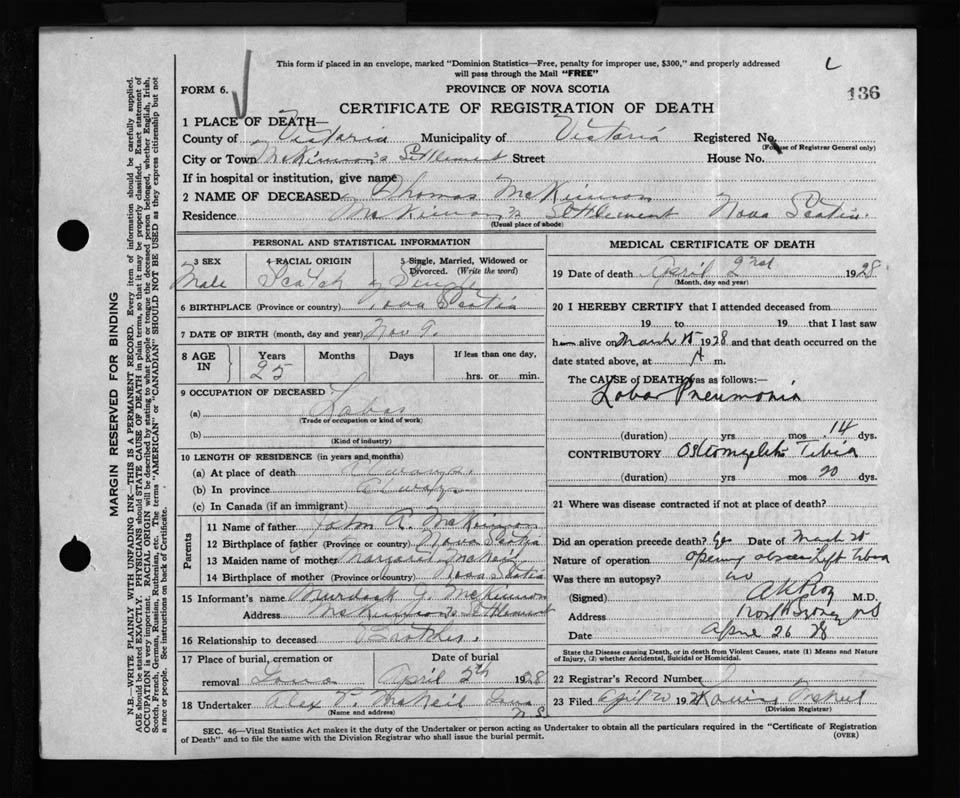 This form if placed in an envelope, marked "Dominion Statistics—Free, penalty for improper use, $300," and properly addressed
will pass through the Mail "FREE"
FORM 6.
PROVINCE OF NOVA SCOTIA
136
CERTIFICATE OF REGISTRATION OF DEATH
1 PLACE OF DEATH—
County of Victoria Municipality of Victoria Registered No.
(For use of Registrar General only)
City or Town McKinnon's Settlement Street House No.
If in hospital or institution, give name
2 NAME OF DECEASED Thomas McKinnon
Residence McKinnon's Settlement Nova Scotia.
(Usual place of abode)
PERSONAL AND STATISTICAL INFORMATION
3 SEX 4 RACIAL ORIGIN 5 Single, Married, Widowed or Divorced. (Write the word)
Male Scotch Single
6 BIRTHPLACE (Province or country) Nova Scotia
7 DATE OF BIRTH (month, day and year) Nov 9.
8 AGE IN Years Months Days If less than one day,
25 hrs. or min.
9 OCCUPATION OF DECEASED
(a) Labor
(Trade or occupation or kind of work)
(b)
(Kind of industry)
10 LENGTH OF RESIDENCE (in years and months)
(a) At place of death
(b) In province Always
(c) In Canada (if an immigrant)
Parents
11 Name of father John R. McKinnon
12 Birthplace of father (Province or country) Nova Scotia
13 Maiden name of mother Margaret McNeil
14 Birthplace of mother (Province or country) Nova Scotia
15 Informant's name Murdock J. McKinnon
Address McKinnon's Settlement
16 Relationship to deceased Brother.
17 Place of burial, cremation or removal Iona
Date of burial April 5th 1928
18 Undertaker Alex McNeil Iona
N.S.
(Name and address)
MEDICAL CERTIFICATE OF DEATH
19 Date of death April 2nd 1928
(Month, day and year)
20 I HEREBY CERTIFY that I attended deceased from
19 to 19 that I last saw
him alive on March 15 1928 and that death occurred on the
date stated above, at A m.
The CAUSE of DEATH was as follows:—
Lobar Pneumonia
(duration) yrs mos 14 dys.
CONTRIBUTORY Osteomyelitis Tibia
(duration) yrs mos 20 dys.
21 Where was disease contracted if not at place of death?
Did an operation precede death? Yes Date of March 20
Nature of operation opening abscess left Tibia
Was there an autopsy? no
(Signed) M.D.
Address North Sydney NS
Date April 26 28
State the Disease causing Death, or in death from Violent Causes, state (1) Means and Nature
of Injury, (2) whether Accidental, Suicidal or Homicidal.
22 Registrar's Record Number
23 Filed April 20 1928 McNeil
(Division Registrar)
SEC. 46—Vital Statistics Act makes it the duty of the Undertaker or person acting as Undertaker to obtain all the particulars required in the "Certificate of Registration
of Death" and to file the same with the Division Registrar who shall issue the burial permit.
(OVER)
MARGIN RESERVED FOR BINDING
N.B.—WRITE PLAINLY WITH UNFADING INK—THIS IS A PERMANENT RECORD. Every item of information should be carefully supplied.
AGE should be stated EXACTLY. PHYSICIANS should STATE CAUSE OF DEATH in plain terms, so that it may be properly classified. Exact statement of
OCCUPATION is very important. RACIAL ORIGIN will be described by stating to what people or tongue the deceased person belonged, whether English, Irish,
Scotch, French, German, Russian, Ruthenian, etc. The terms "AMERICAN" or "CANADIAN" SHOULD NOT BE USED as they express citizenship but not
a race or people. See instructions on back of Certificate.